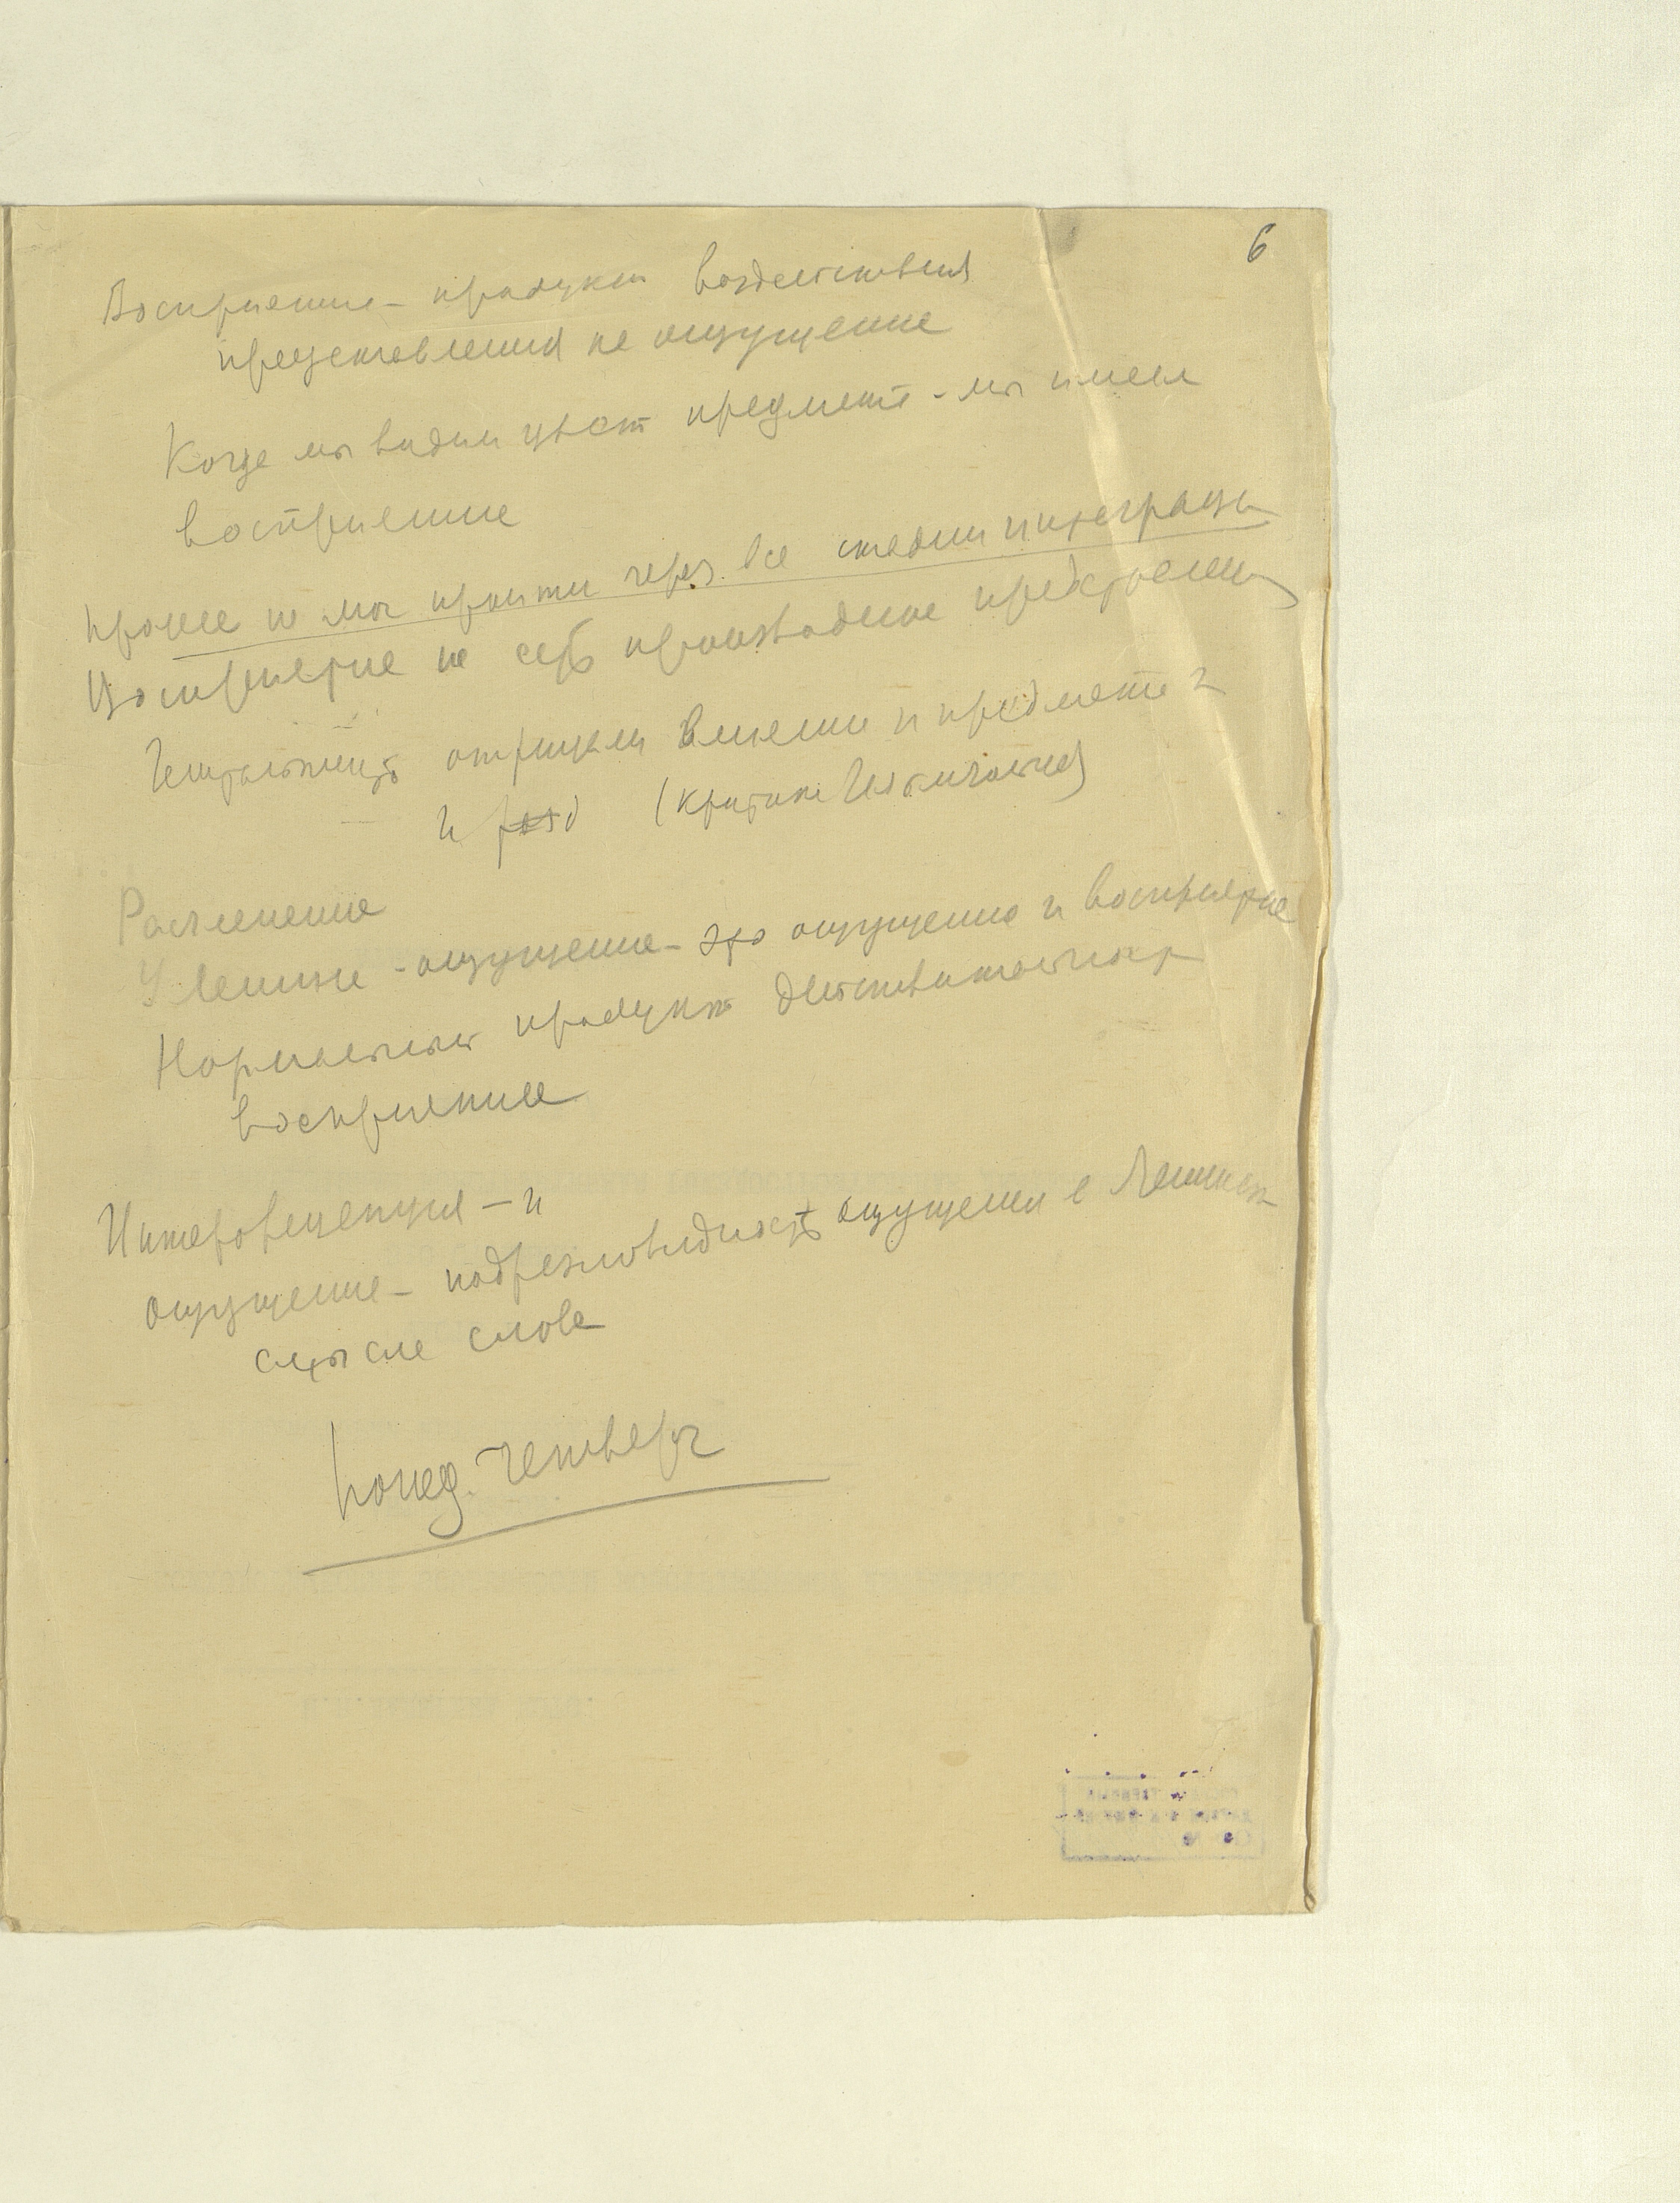 6
Восприятие - продукт воздействия
представления на ощущение
Когда мы видим цвет предмета - мы имеем
восприятие
Процесс не мог пройти через все стадии интеграции
Восприятие на себе производные
Гештальтисты отрицали влияние и предмета и
и (критика Гештальтистов)
Расчленение
У Ленина - ощущение - это ощущение и восприятие
Нормальный продукт действительности
восприятие
Интероцепция - и
ощущение - ощущения в Ленинск
смысле слова
Понед. четверг